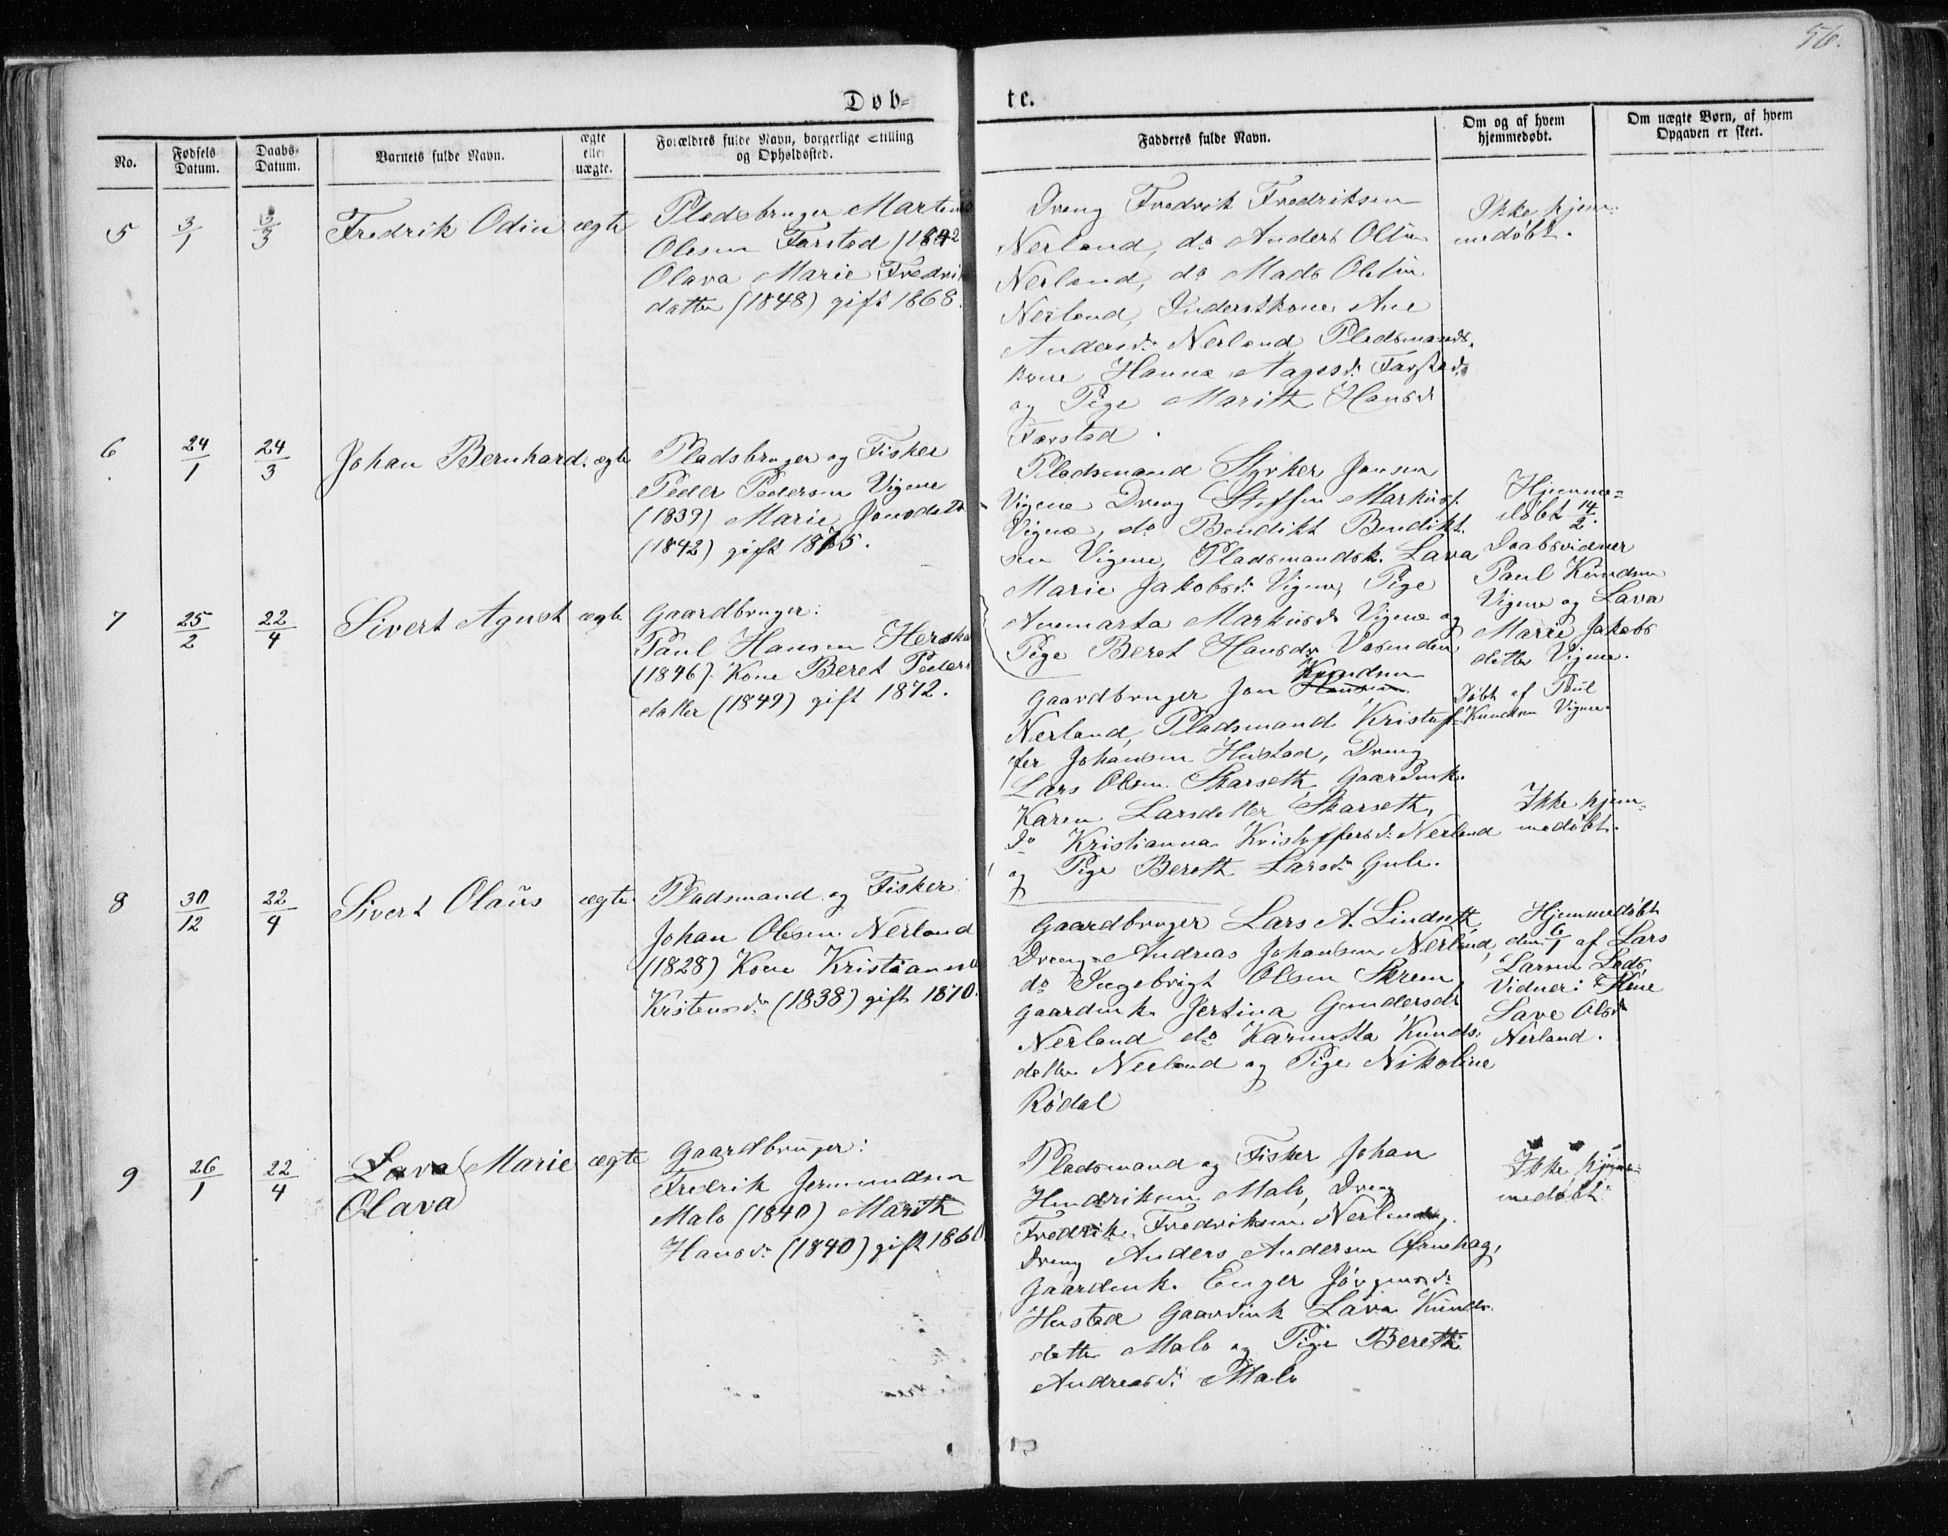 56.
Döb=
te.
No.
Fødsels Datum.
Daabs-Datum.
Barnets fulde Navn.
ægte eller uægte.
Forældres fulde Navn, borgerlige Stilling og Opholdssted.
Fadderes fulde Navn.
Om og af hvem hjemmedøbt.
Om uægte Børn, af hvem Opgaven er skeet.
5
3/1
Fredrik Odin
ægte
Pladsbruger Martinus
Olesen Farstad (1842
Olava Marie Fredrik
datter (1848) gift 1868.
Dreng Fredrik Fredriksen
Nerland, do Anders Olsen
Nerland, do Mads Olsen
Nerland, Inderstkone Ane
Andersdr Nerland Pladsmands-
kone Hanna Aagesdr Farstad
og Pige Marith Hansdr
Farstad.
Ikke hjem-
medøbt.
6
24/1
24/3
Johan Bernhard.
ægte
Pladsbruger og Fisker
Peder Pedersen Vigene
(1839) Marie Jonsdatr
(1842) gift 1865.
Pladsmand Styrker Jonsen
Vigene Dreng Steffen Markus
Vigene, do Bendikt Bendikt
sen Vigene, Pladsmandsk. Lava
Marie Jakobsdr Vigene, Pige
Anemarta Markusdr Vigene og
Pige Beret Hansdr Vasenden
Hjemme-
døbt 14/2.
Daabsvidner
Paul Knudsen
Vigene og Lava
Marie Jakobs
datter Vigene.
Døbt af Paul
Knudsen Vigene.
7
25/2
22/4
Sivert Agust
ægte
Gaardbruger:
Paul Hansen Herskar
(1846). Kone Beret Peders
datter (1849) gift 1872.
Knudsen
Gaardbruger Jon Hansen
Nerland, Pladsmand Kristof-
fer Johansen Hustad, Dreng
Lars Olsen Skarseth, Gaardmk.
Karen Larsdatter Skarseth,
do Kristianna Kristoffersdr Nerland
og Pige Bereth Larsdr Gule.
Ikke hjem-
medøbt.
8
30/12
22/4
Sivert Olaus
ægte
Pladsmand og Fisker:
Johan Olsen Nerland
(1828) Kone Kristianna
Kristensdr (1838) gift 1870.
Gaardbruger Lars A. Lindseth
Dreng Andreas Johansen Nerland,
do Ingebrigt Olsen Skrem
Gaardmk. Jertina Gundersdr
Nerland do Karmesta Knuds-
datter Nerland og Pige Nikoline
Rödal
Hjemmedöbt
den 6/1 af Lars
Larsen Lads,
Vidner:
Lave Olsdr
Nerland.
9
26/1
22/4
Lava Marie
Olava
ægte
Gaardbruger:
Fredrik Jermundsen
Malo (1840) Marith
Hansdr (1840) gift 186
Pladsmand og Fisker Johan
Hendriksen Malo, Dreng
Fredrik Fredriksen Nerland,
Dreng Anders Andersen Ørnehag,
Gaardmk. Enger Jörgensdr
Hustad Gaardmk Lava Knuds-
datter Malo og Pige Bereth
Andreasdr Malo
Ikke hjem-
medöbt